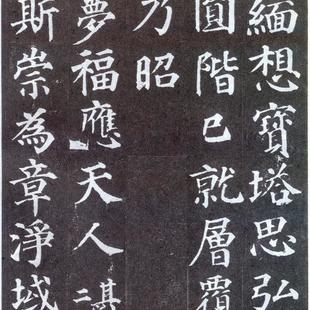 緬想寶塔思弘
圓階已就層覆
乃昭
夢福應天人其二
斯崇為章淨域